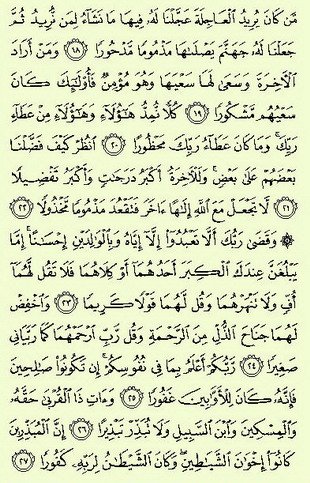 مَّن كَانَ يُرِيدُ ٱلْعَاجِلَةَ عَجَّلْنَا لَهُۥ فِيهَا مَا نَشَآءُ لِمَن نُّرِيدُ ثُمَّ
جَعَلْنَا لَهُۥ جَهَنَّمَ يَصْلَىٰهَا مَذْمُومًا مَّدْحُورًا ١٨ وَمَنْ أَرَادَ
ٱلْءَاخِرَةَ وَسَعَىٰ لَهَا سَعْيَهَا وَهُوَ مُؤْمِنٌ فَأُو۟لَـٰٓئِكَ كَانَ
سَعْيُهُم مَّشْكُورًا ١٩ كُلًّا نُّمِدُّ هَـٰٓؤُلَآءِ وَهَـٰٓؤُلَآءِ مِنْ عَطَآءِ
رَبِّكَ ۚ وَمَا كَانَ عَطَآءُ رَبِّكَ مَحْظُورًا ٢٠ ٱنظُرْ كَيْفَ فَضَّلْنَا
بَعْضَهُمْ عَلَىٰ بَعْضٍ ۚ وَلَلْءَاخِرَةُ أَكْبَرُ دَرَجَـٰتٍ وَأَكْبَرُ تَفْضِيلًا
٢١ لَّا تَجْعَلْ مَعَ ٱللَّهِ إِلَـٰهًا ءَاخَرَ فَتَقْعُدَ مَذْمُومًا مَّخْذُولًا ٢٢
۞ وَقَضَىٰ رَبُّكَ أَلَّا تَعْبُدُوٓا۟ إِلَّآ إِيَّاهُ وَبِٱلْوَٰلِدَيْنِ إِحْسَـٰنًا ۚ إِمَّا
يَبْلُغَنَّ عِندَكَ ٱلْكِبَرَ أَحَدُهُمَآ أَوْ كِلَاهُمَا فَلَا تَقُل لَّهُمَآ
أُفٍّ وَلَا تَنْهَرْهُمَا وَقُل لَّهُمَا قَوْلًا كَرِيمًا ٢٣ وَٱخْفِضْ
لَهُمَا جَنَاحَ ٱلذُّلِّ مِنَ ٱلرَّحْمَةِ وَقُل رَّبِّ ٱرْحَمْهُمَا كَمَا رَبَّيَانِى
صَغِيرًا ٢٤ رَّبُّكُمْ أَعْلَمُ بِمَا فِى نُفُوسِكُمْ ۚ إِن تَكُونُوا۟ صَـٰلِحِينَ
فَإِنَّهُۥ كَانَ لِلْأَوَّٰبِينَ غَفُورًا ٢٥ وَءَاتِ ذَا ٱلْقُرْبَىٰ حَقَّهُۥ
وَٱلْمِسْكِينَ وَٱبْنَ ٱلسَّبِيلِ وَلَا تُبَذِّرْ تَبْذِيرًا ٢٦ إِنَّ ٱلْمُبَذِّرِينَ
كَانُوٓا۟ إِخْوَٰنَ ٱلشَّيَـٰطِينِ ۖ وَكَانَ ٱلشَّيْطَـٰنُ لِرَبِّهِۦ كَفُورًا ٢٧